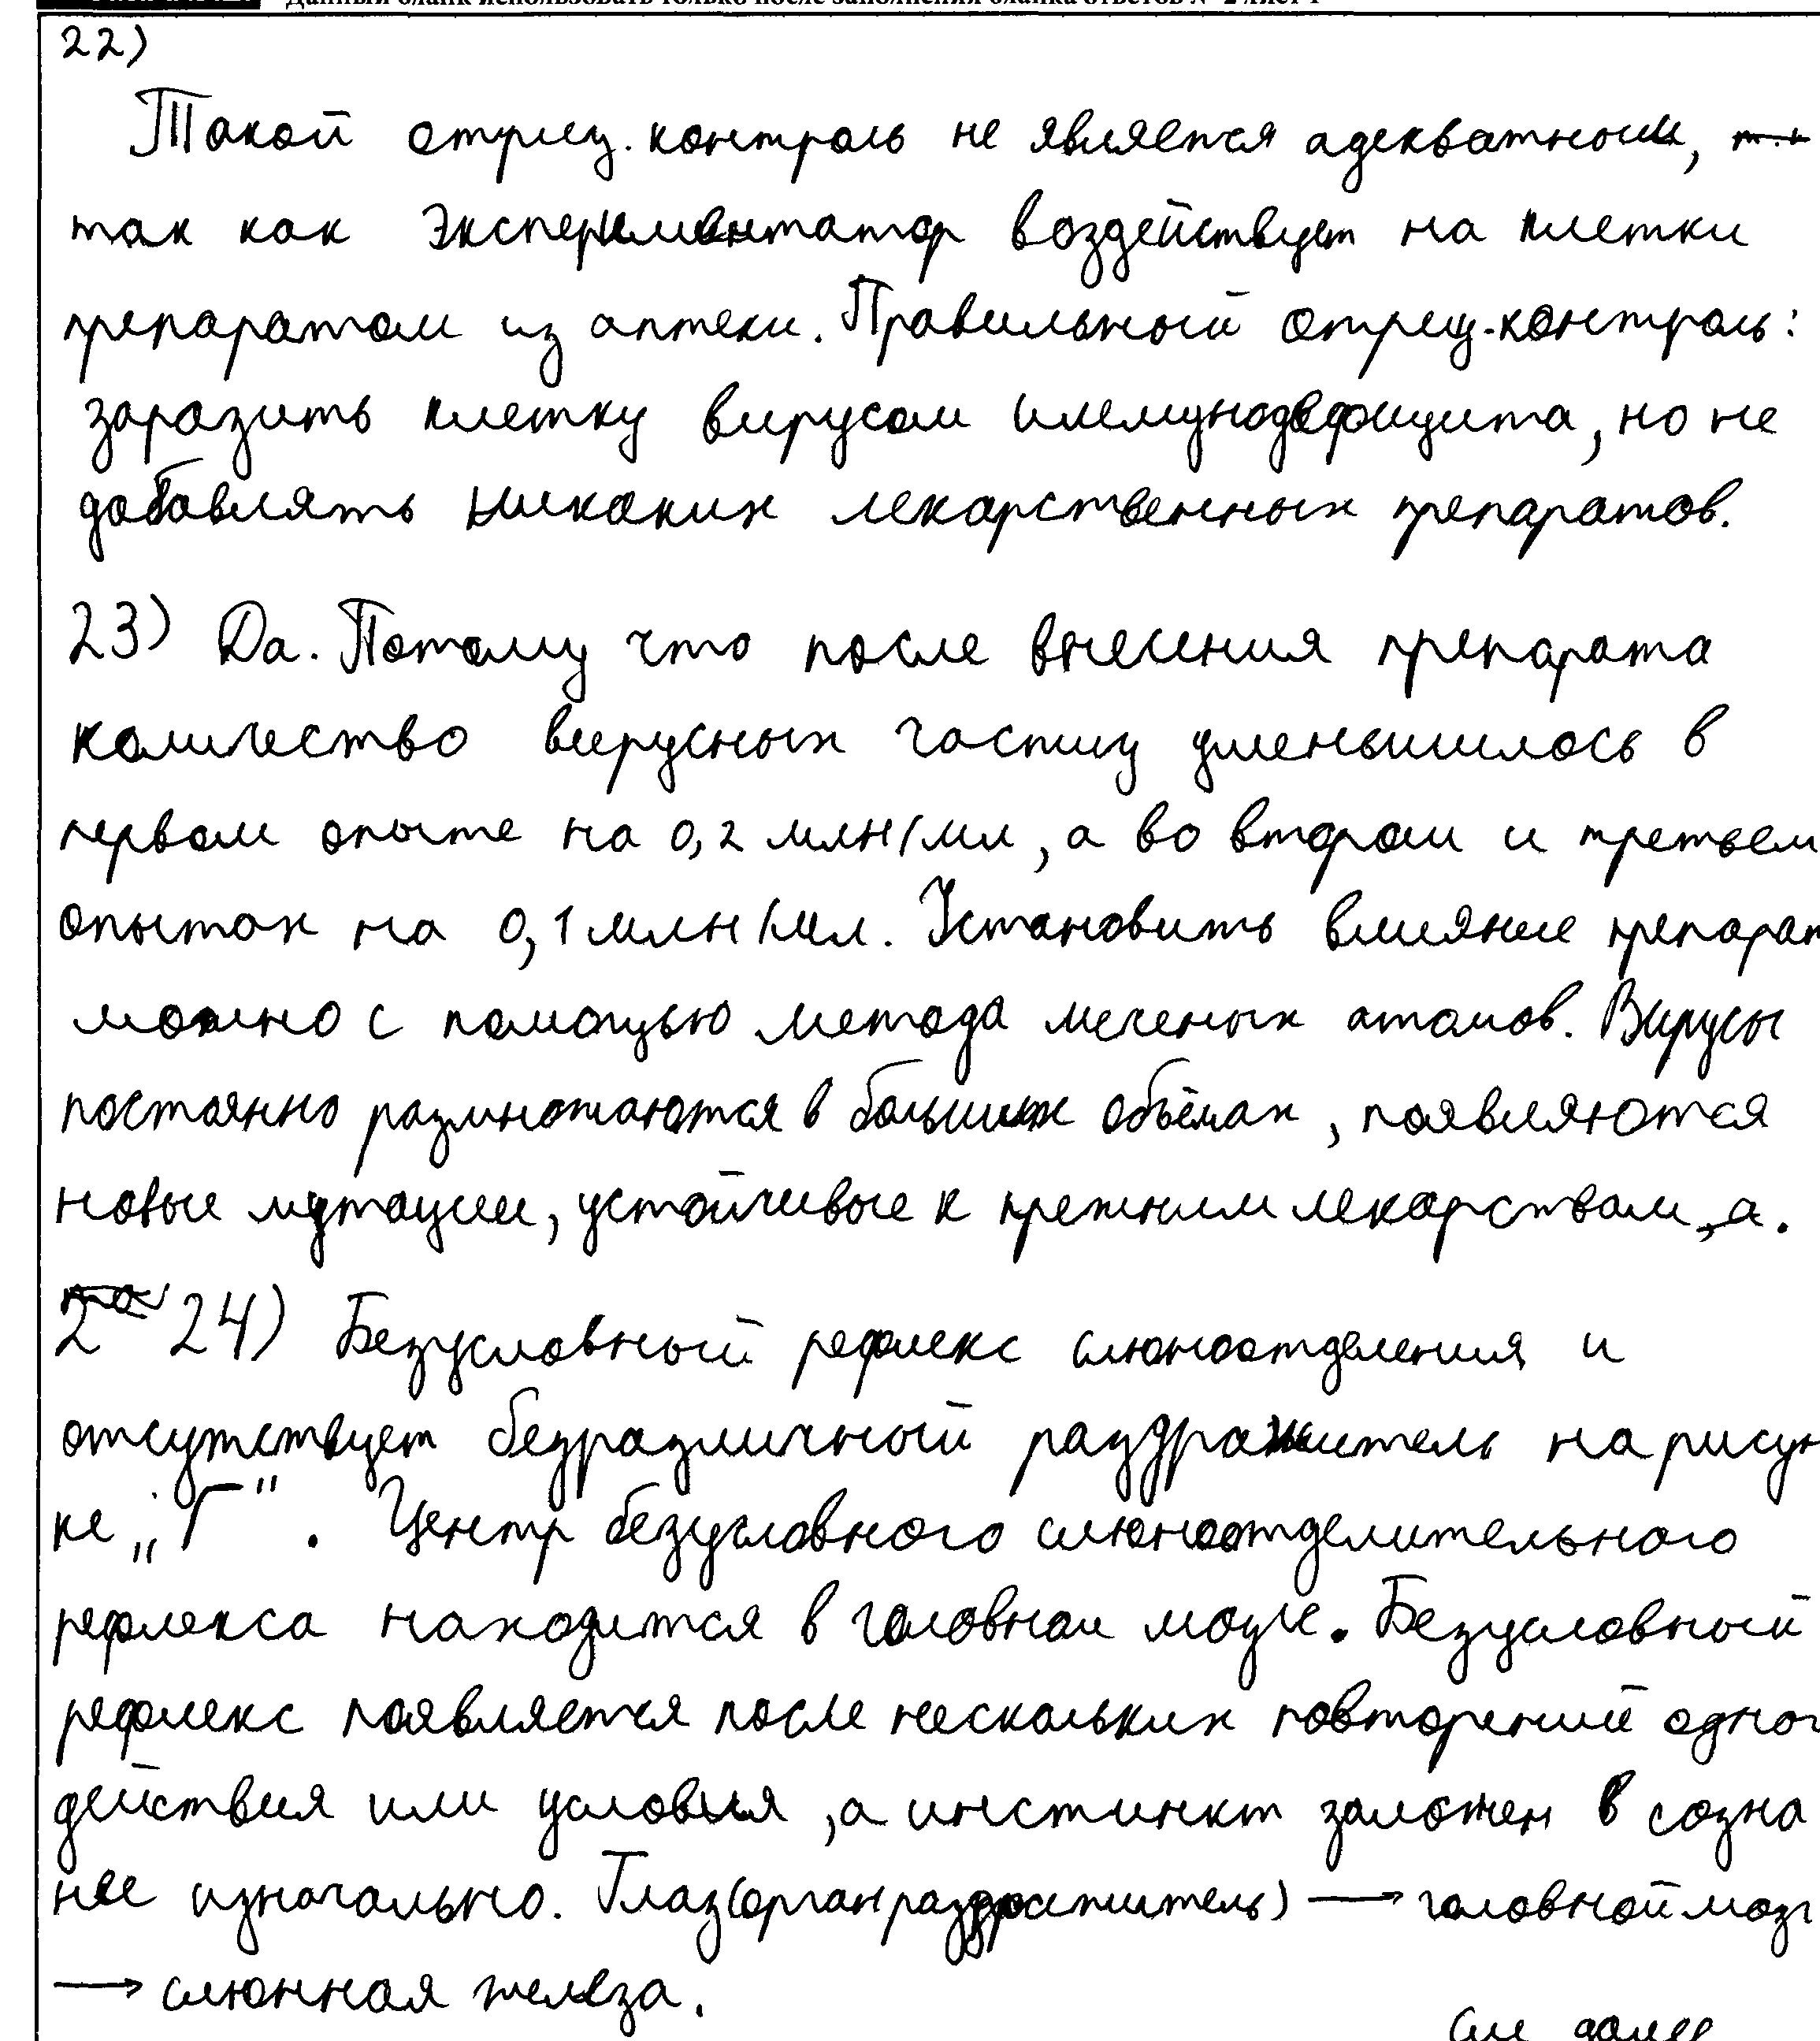 Данный бланк использовать только после заполнения бланка ответов № 2 лист 1
22)
Такой отриц. контроль не является адекватным, т.к
так как экспериментатор воздействует на клетки
препаратом из аптеки. Правильный отриц. контроль:
заразить клетку вирусом иммунодефицита, но не
добавлять никаких лекарственных препаратов.
23) Да. Потому что после внесения препарата
количество вирусных частиц уменьшилось в
первом опыте на 0,2 млн/мл, а во втором и третьем
опытах на 0,1 млн/мл. Установить влияние препарат
можно с помощью метода меченых атомов. Вирусы
постоянно размножаются в больших объёмах, появляются
новые мутации, устойчивые к прежним лекарствам, а.
24) Безусловный рефлекс слюноотделения и
отсутствует безразличный раздражитель на рисун
ке „Г". Центр безусловного слюноотделительного
рефлекса находится в головном мозге. Безусловный
рефлекс появляется после нескольких повторений одног
действия или условия, а инстинкт заложен в созна
нее изначально. Глаз(орган раздражитель) → головной мозг
→ слюнная железа.
См далее